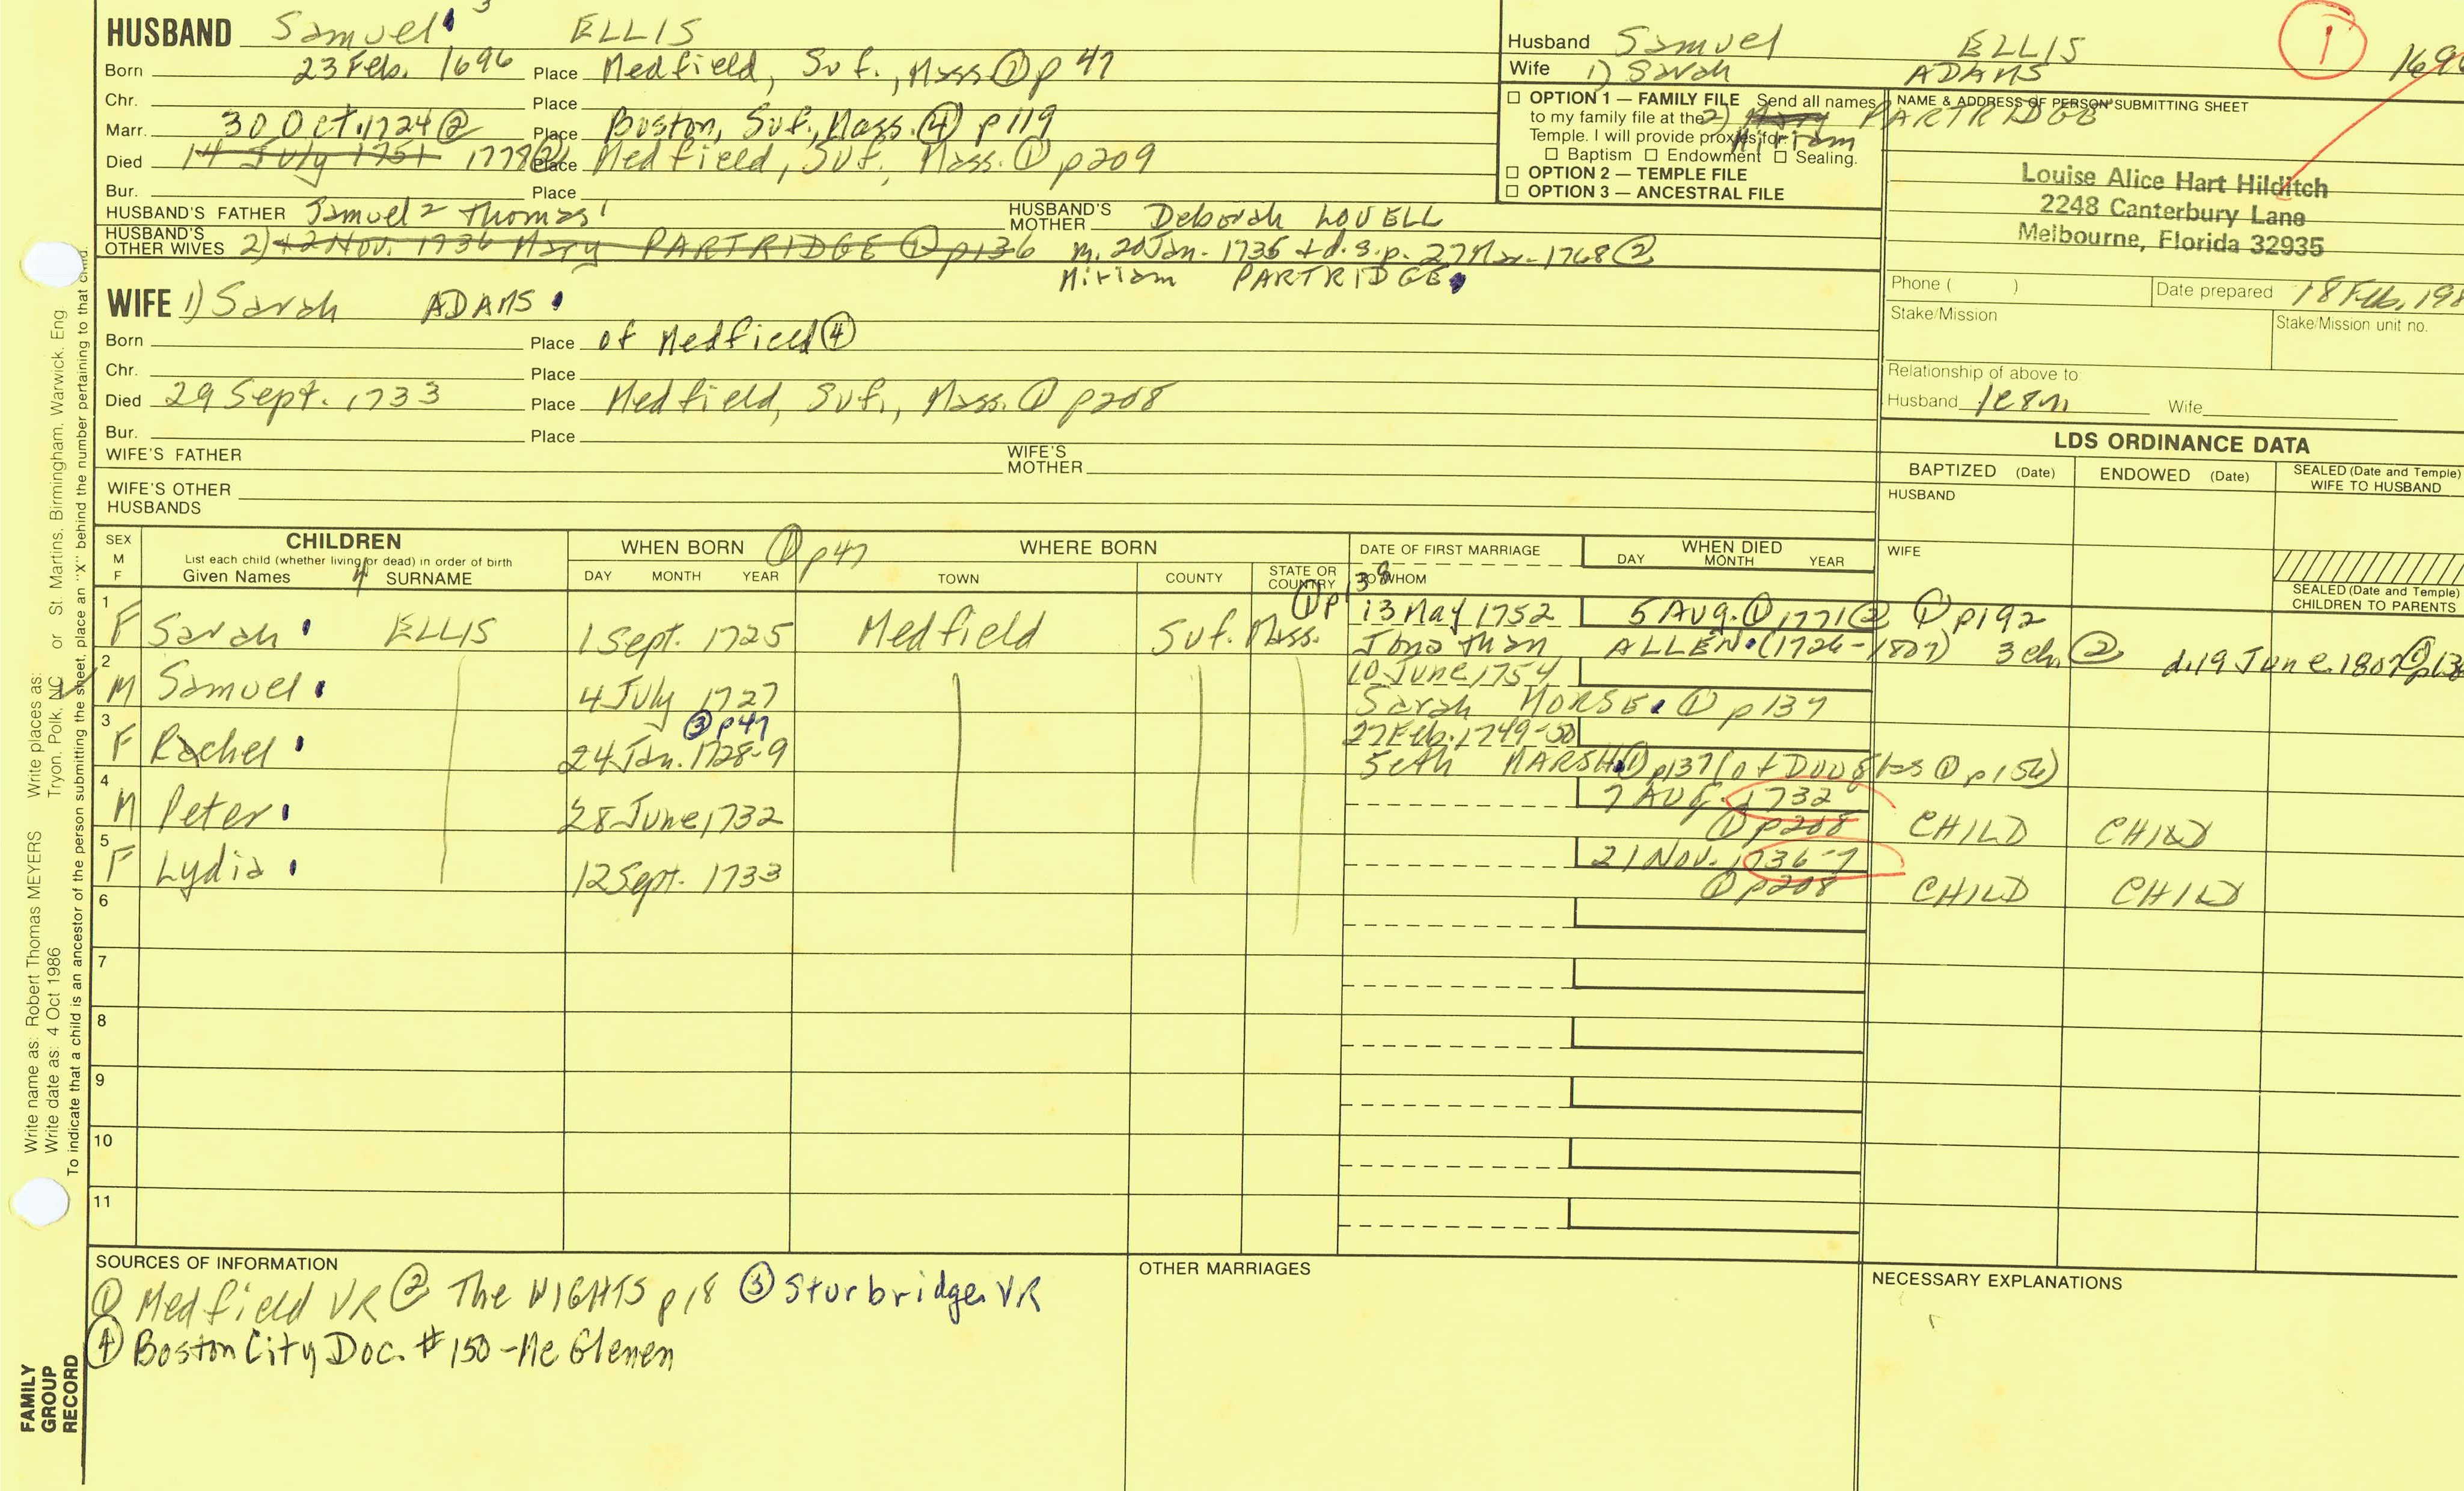 HUSBAND Samuel 3 ELLIS
Born 23 Feb. 1696 Place Medfield, Suf., Mass ① p 47
Chr. Place
Marr. 30 Oct. 1724 ② Place Boston, Suf., Mass. ④ p119
Died 14 July 1751 1778 ② Place Medfield, Suf., Mass. ① p209
Bur. Place
HUSBAND'S FATHER Samuel 2 Thomas 1 HUSBAND'S MOTHER Deborah LOVELL
HUSBAND'S OTHER WIVES 2) 12 Nov. 1736 Mary PARTRIDGE ① p136 m. 20 Jan. 1735 + d.s.p. 27 Mar. 1768 ②
Miriam PARTRIDGE
WIFE 1) Sarah ADAMS
Born Place of Medfield ④
Chr. Place
Died 29 Sept. 1733 Place Medfield, Suf., Mass. ① p208
Bur. Place
WIFE'S FATHER WIFE'S MOTHER
WIFE'S OTHER HUSBANDS
Husband Samuel ELLIS ①
Wife 1) Sarah ADAMS
☐ OPTION 1 — FAMILY FILE Send all names
to my family file at the 2) Mary PARTRIDGE
Temple. I will provide proxies for: Miriam
☐ Baptism ☐ Endowment ☐ Sealing.
☐ OPTION 2 — TEMPLE FILE
☐ OPTION 3 — ANCESTRAL FILE
NAME & ADDRESS OF PERSON SUBMITTING SHEET
Louise Alice Hart Hilditch
2248 Canterbury Lane
Melbourne, Florida 32935
Phone ( ) Date prepared 18 Feb. 198
Stake/Mission Stake/Mission unit no.
Relationship of above to:
Husband 1c8m Wife
LDS ORDINANCE DATA
BAPTIZED (Date) ENDOWED (Date) SEALED (Date and Temple) WIFE TO HUSBAND
HUSBAND
WIFE
SEALED (Date and Temple) CHILDREN TO PARENTS
SEX M F CHILDREN List each child (whether living or dead) in order of birth Given Names 4 SURNAME
WHEN BORN ① p47 DAY MONTH YEAR
WHERE BORN TOWN COUNTY STATE OR COUNTRY
DATE OF FIRST MARRIAGE TO WHOM
WHEN DIED DAY MONTH YEAR
1 F Sarah ELLIS 1 Sept. 1725 Medfield Suf. Mass. ① p138 13 May 1752 5 Aug. ① 1771 ② ① p192
Jonathan ALLEN (1726-1807) 3 ch. ② d. 19 June 1807 ①
2 M Samuel 4 July 1727 10 June 1754
Sarah MORSE ① p137
3 F Rachel ③ p47 24 Jan. 1728-9 27 Feb. 1749-50
Seth MARSH ① p137 (of Douglas ① p154)
4 M Peter 28 June 1732 7 Aug. 1732 ① p208 CHILD CHILD
5 F Lydia 12 Sept. 1733 21 Nov. 1736-7 ① p208 CHILD CHILD
6
7
8
9
10
11
SOURCES OF INFORMATION
① Medfield VR ② The WIGHTS p18 ③ Sturbridge VR
④ Boston City Doc. # 150 - Mc Glenen
OTHER MARRIAGES
NECESSARY EXPLANATIONS
Write name as: Robert Thomas MEYERS Write places as: Tryon, Polk, NC or St. Martins, Birmingham, Warwick, Eng
Write date as: 4 Oct 1986
To indicate that a child is an ancestor of the person submitting the sheet, place an "X" behind the number pertaining to that child.
FAMILY GROUP RECORD